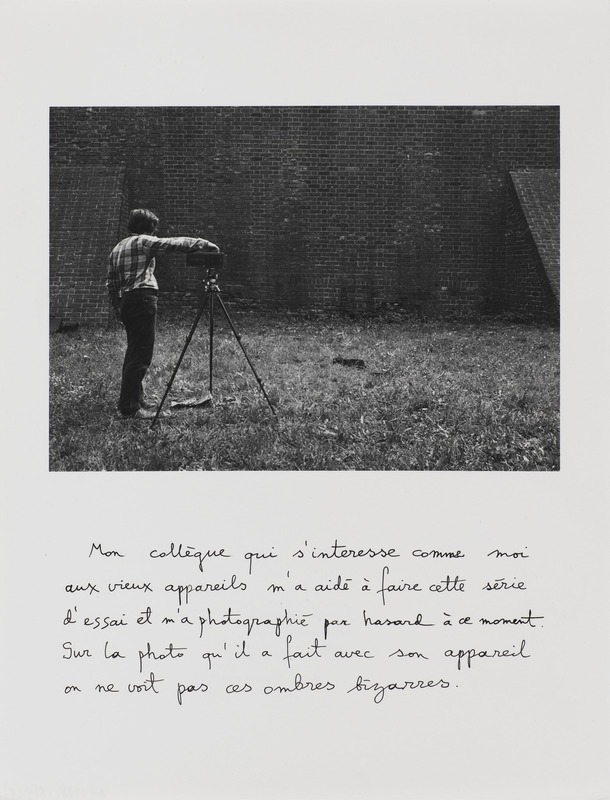 Mon collègue qui s'interesse comme moi
aux vieux appareils m'a aidé à faire cette série
d'essai et m'a photographié par hasard à ce moment.
Sur la photo qu'il a fait avec son appareil
on ne voit pas ces ombres bizarres.